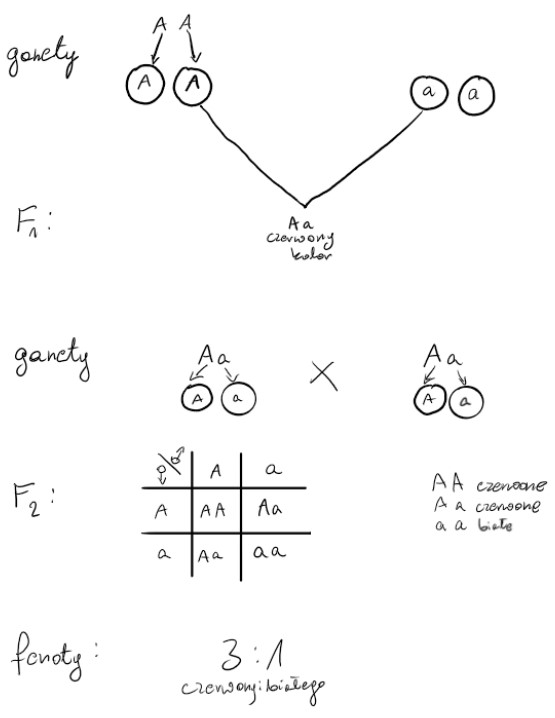 A A
gamety A A a a
F1:
Aa
czerwony
kolor
gamety Aa X Aa
A a A a
F2:
♀/♂ A a
A AA Aa
a Aa aa
AA czerwone
Aa czerwone
aa białe
fenoty: 3:1
czerwony:białego